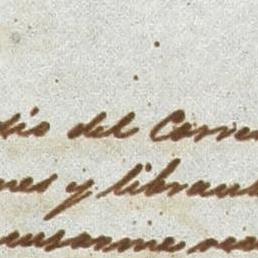 dio del Corre
nes y libran
cusarme re